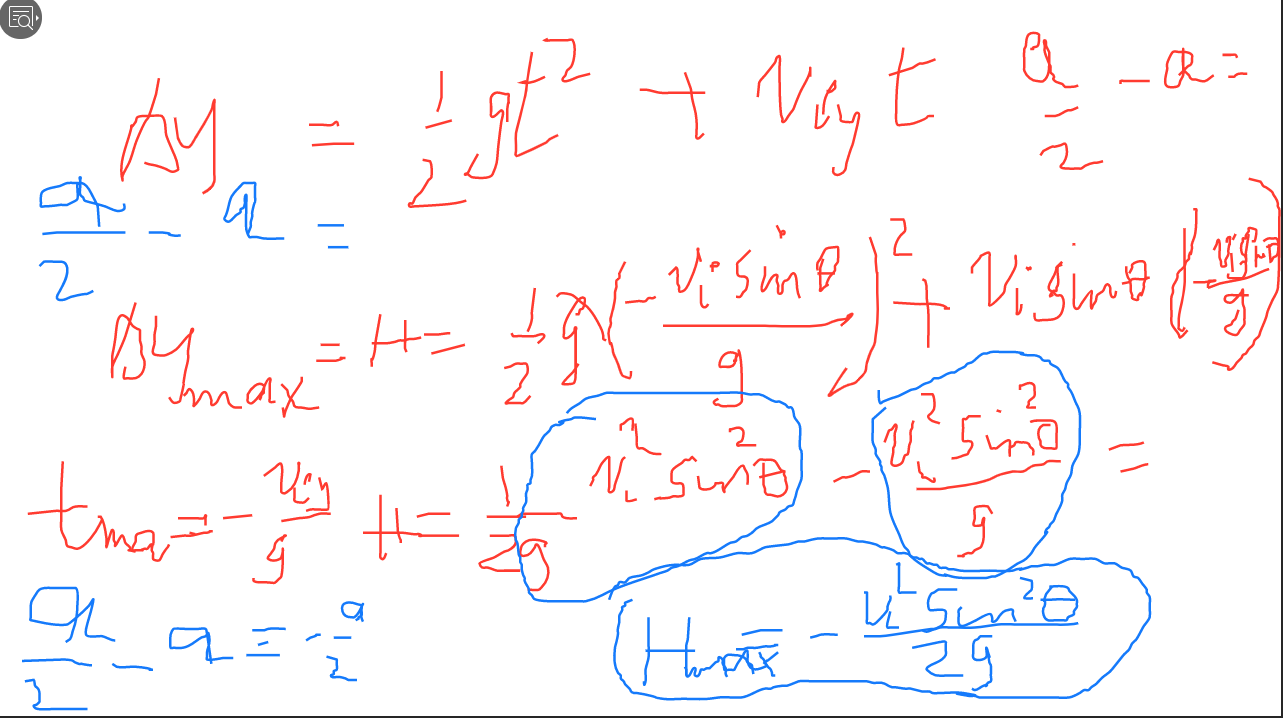 Δy = 1/2 gt² + v_iy t   a/2 - a =
a/2 - a =
Δy_max = H = 1/2 g(- v_i sinθ / g)² + v_i sinθ (- v_i sinθ / g)
t_max = - v_iy / g   H = 1/2g v_i² sin²θ - v_i² sin²θ / g =
a/2 - a = - a/2   H_max = - v_i² sin²θ / 2g